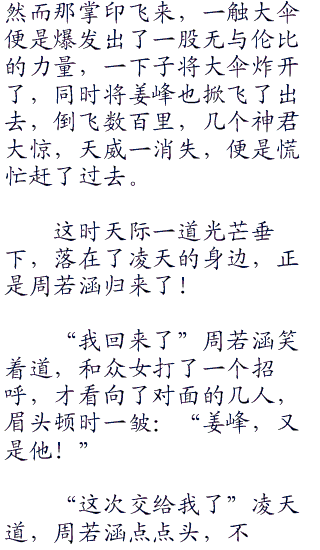 然而那掌印飞来，一触大伞
便是爆发出了一股无与伦比
的力量，一下子将大伞炸开
了，同时将姜峰也掀飞了出
去，倒飞数百里，几个神君
大惊，天威一消失，便是慌
忙赶了过去。
这时天际一道光芒垂
下，落在了凌天的身边，正
是周若涵归来了！
“我回来了”周若涵笑
着道，和众女打了一个招
呼，才看向了对面的几人，
眉头顿时一皱：“姜峰，又
是他！”
“这次交给我了”凌天
道，周若涵点点头，不